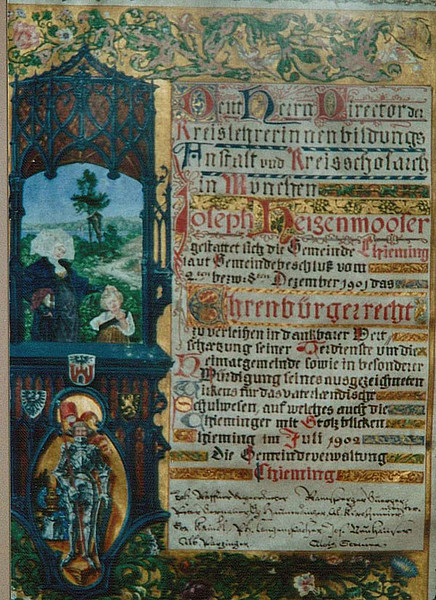 Dem Herrn Director der
Kreislehrerinnenbildungs
Anstalt und Kreisscholarch
in München
Joseph Heigenmooser
gestattet sich die Gemeinde Chieming
laut Gemeindebeschluß vom
2ten bezw. 8ten Dezember 1901 das
Ehrenbürgerrecht
zu verleihen in dankbarer Wert
schetzung seiner Verdienste um die
Heimatgemeinde sowie in besonderer
Würdigung seines ausgezeichneten
Wirkens für das vaterländische
Schulwesen, auf welches auch die
Chieminger mit Stolz blicken
Chieming im Juli 1902
Die Gemeindeverwaltung
Chieming